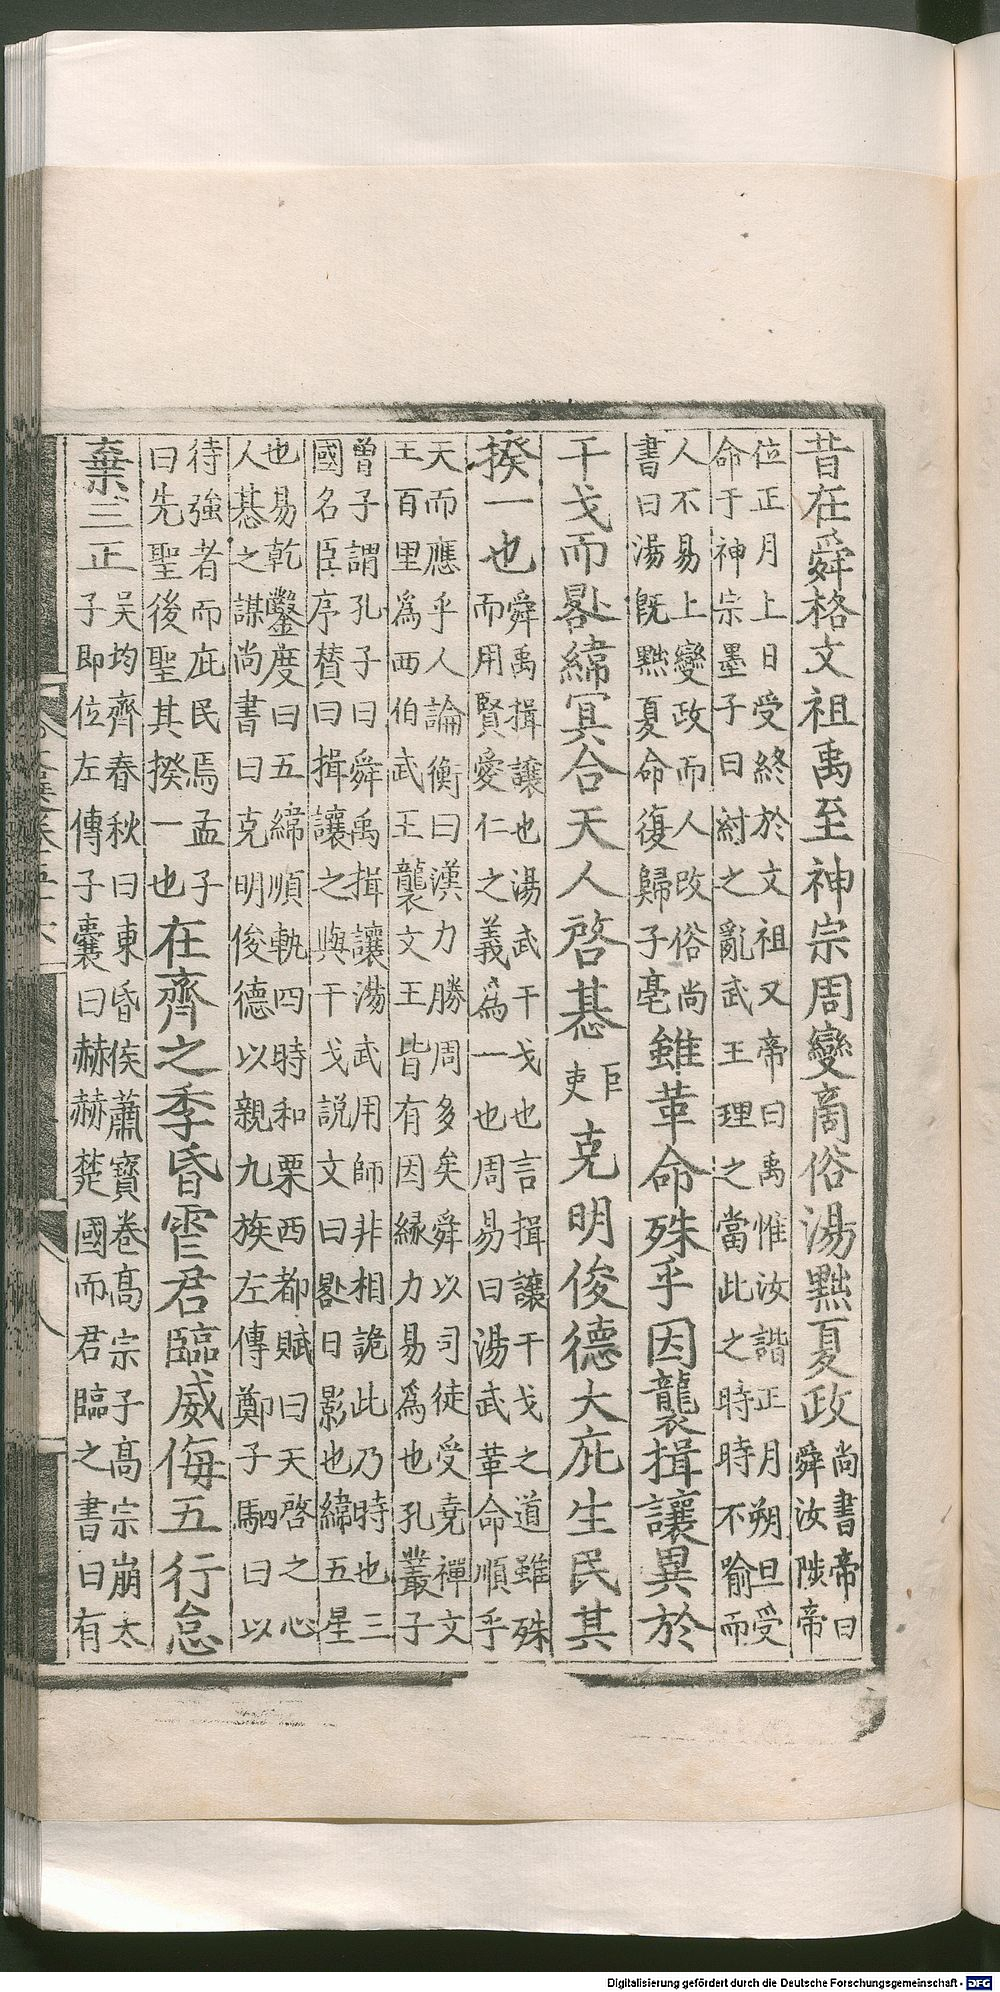 昔在舜格文祖禹至神宗周變商俗湯黜夏政
尚書帝曰
舜汝陟帝
位正月上日受終於文祖又帝曰禹惟汝諧正月朔旦受
命于神宗墨子曰紂之亂武王理之當此之時時不喻而
人不易上變政而人改俗尚
書曰湯旣黜夏命復歸子亳
雖革命殊乎因襲揖讓異於
干戈而晷緯冥合天人啓惎
巨
吏
克明俊德大庇生民其
揆一也
舜禹揖讓也湯武干戈也言揖讓干戈之道雖殊
而用賢愛仁之義爲一也周易曰湯武革命順乎
天而應乎人論衡曰漢力勝周多矣舜以司徒受堯禪文
王百里爲西伯武王襲文王皆有因緣力易爲也孔叢子
曾子謂孔子曰舜禹揖讓湯武用師非相詭此乃時也三
國名臣序賛曰揖讓之與干戈説文曰晷日影也緯五星
也易乾鑿度曰五緯順軌四時和栗西都賦曰天啓之心
人惎之謀尚書曰克明俊德以親九族左傳鄭子駟曰以
待強者而庇民焉孟子
曰先聖後聖其揆一也
在齊之季昏虐君臨威侮五行怠
棄三正
吴均齊春秋曰東昏侯蕭寶卷髙宗子髙宗崩太
子即位左傳子囊曰赫赫楚國而君臨之書曰有
Digitalisierung gefördert durch die Deutsche Forschungsgemeinschaft - DFG